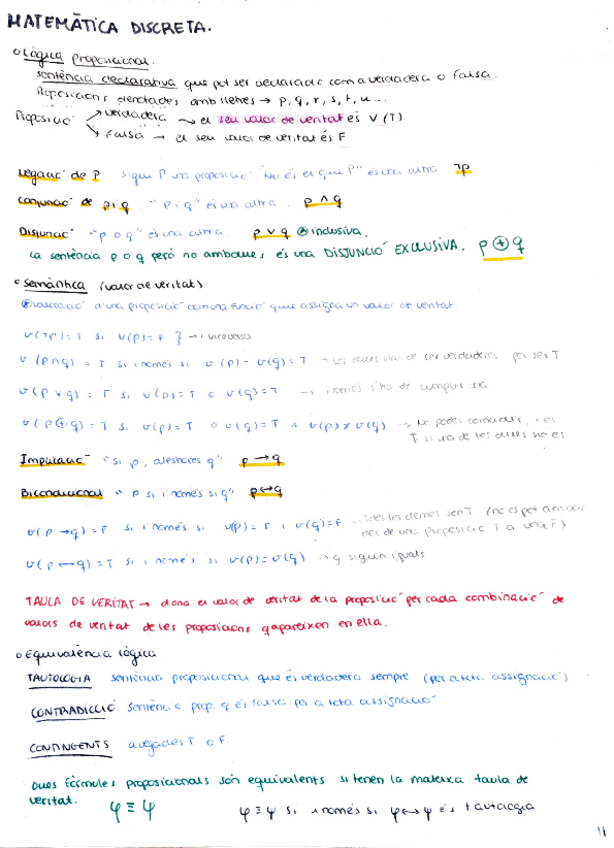 MATEMÀTICA DISCRETA.
Lògica proposicional.
sentència declarativa que pot ser declarada com a verdadera o falsa.
Proposicions denotades amb lletres → p, q, r, s, t, u...
Proposició → verdadera → el seu valor de veritat és V (T)
→ Falsa → el seu valor de veritat és F
Negació de P sigui P una proposició. "No és el que P" és una altra ¬p
Conjunció de p i q. "p i q" és una altra. p ∧ q
Disjunció "p o q" és una altra. p ∨ q inclusiva.
La sentència p o q però no ambdues, és una DISJUNCIÓ EXCLUSIVA. p ⊕ q
Semàntica (valor de veritat)
d'una proposició com una funció que assigna un valor de veritat
v(¬p) = T si v(p) = F } → i viceversa
v (p∧q) = T si i només si v(p) = v(q) = T → les dues han de ser verdaderes per ser T
v(p ∨ q) = T si v(p) = T o v(q) = T → només s'ha de cumplir una
v(p ⊕ q) = T si v(p) = T o v(q) = T i v(p) ≠ v(q) → No poden coincidir, és
T si una de les dues no és
Implicació "si p, aleshores q" p → q
Bicondicional "p si i només si q" p ↔ q
v(p → q) = F si i només si v(p) = T i v(q) = F → Totes les demés són T (no es pot
de una proposició T a una F)
v(p ↔ q) = T si i només si v(p) = v(q) → q siguin iguals
TAULA DE VERITAT → dona el valor de veritat de la proposició per cada combinació de
valors de veritat de les proposicions q apareixen en ella.
Equivalència lògica
TAUTOLOGIA sentència proposicional que és verdadera sempre (per a tota assignació)
CONTRADICCIÓ sentència prop. q és falsa per a tota assignació
CONTINGENTS a vegades T o F.
Dues fórmules proposicionals són equivalents si tenen la mateixa taula de
veritat. φ ≡ ψ φ ≡ ψ si i només si φ ↔ ψ és tautologia